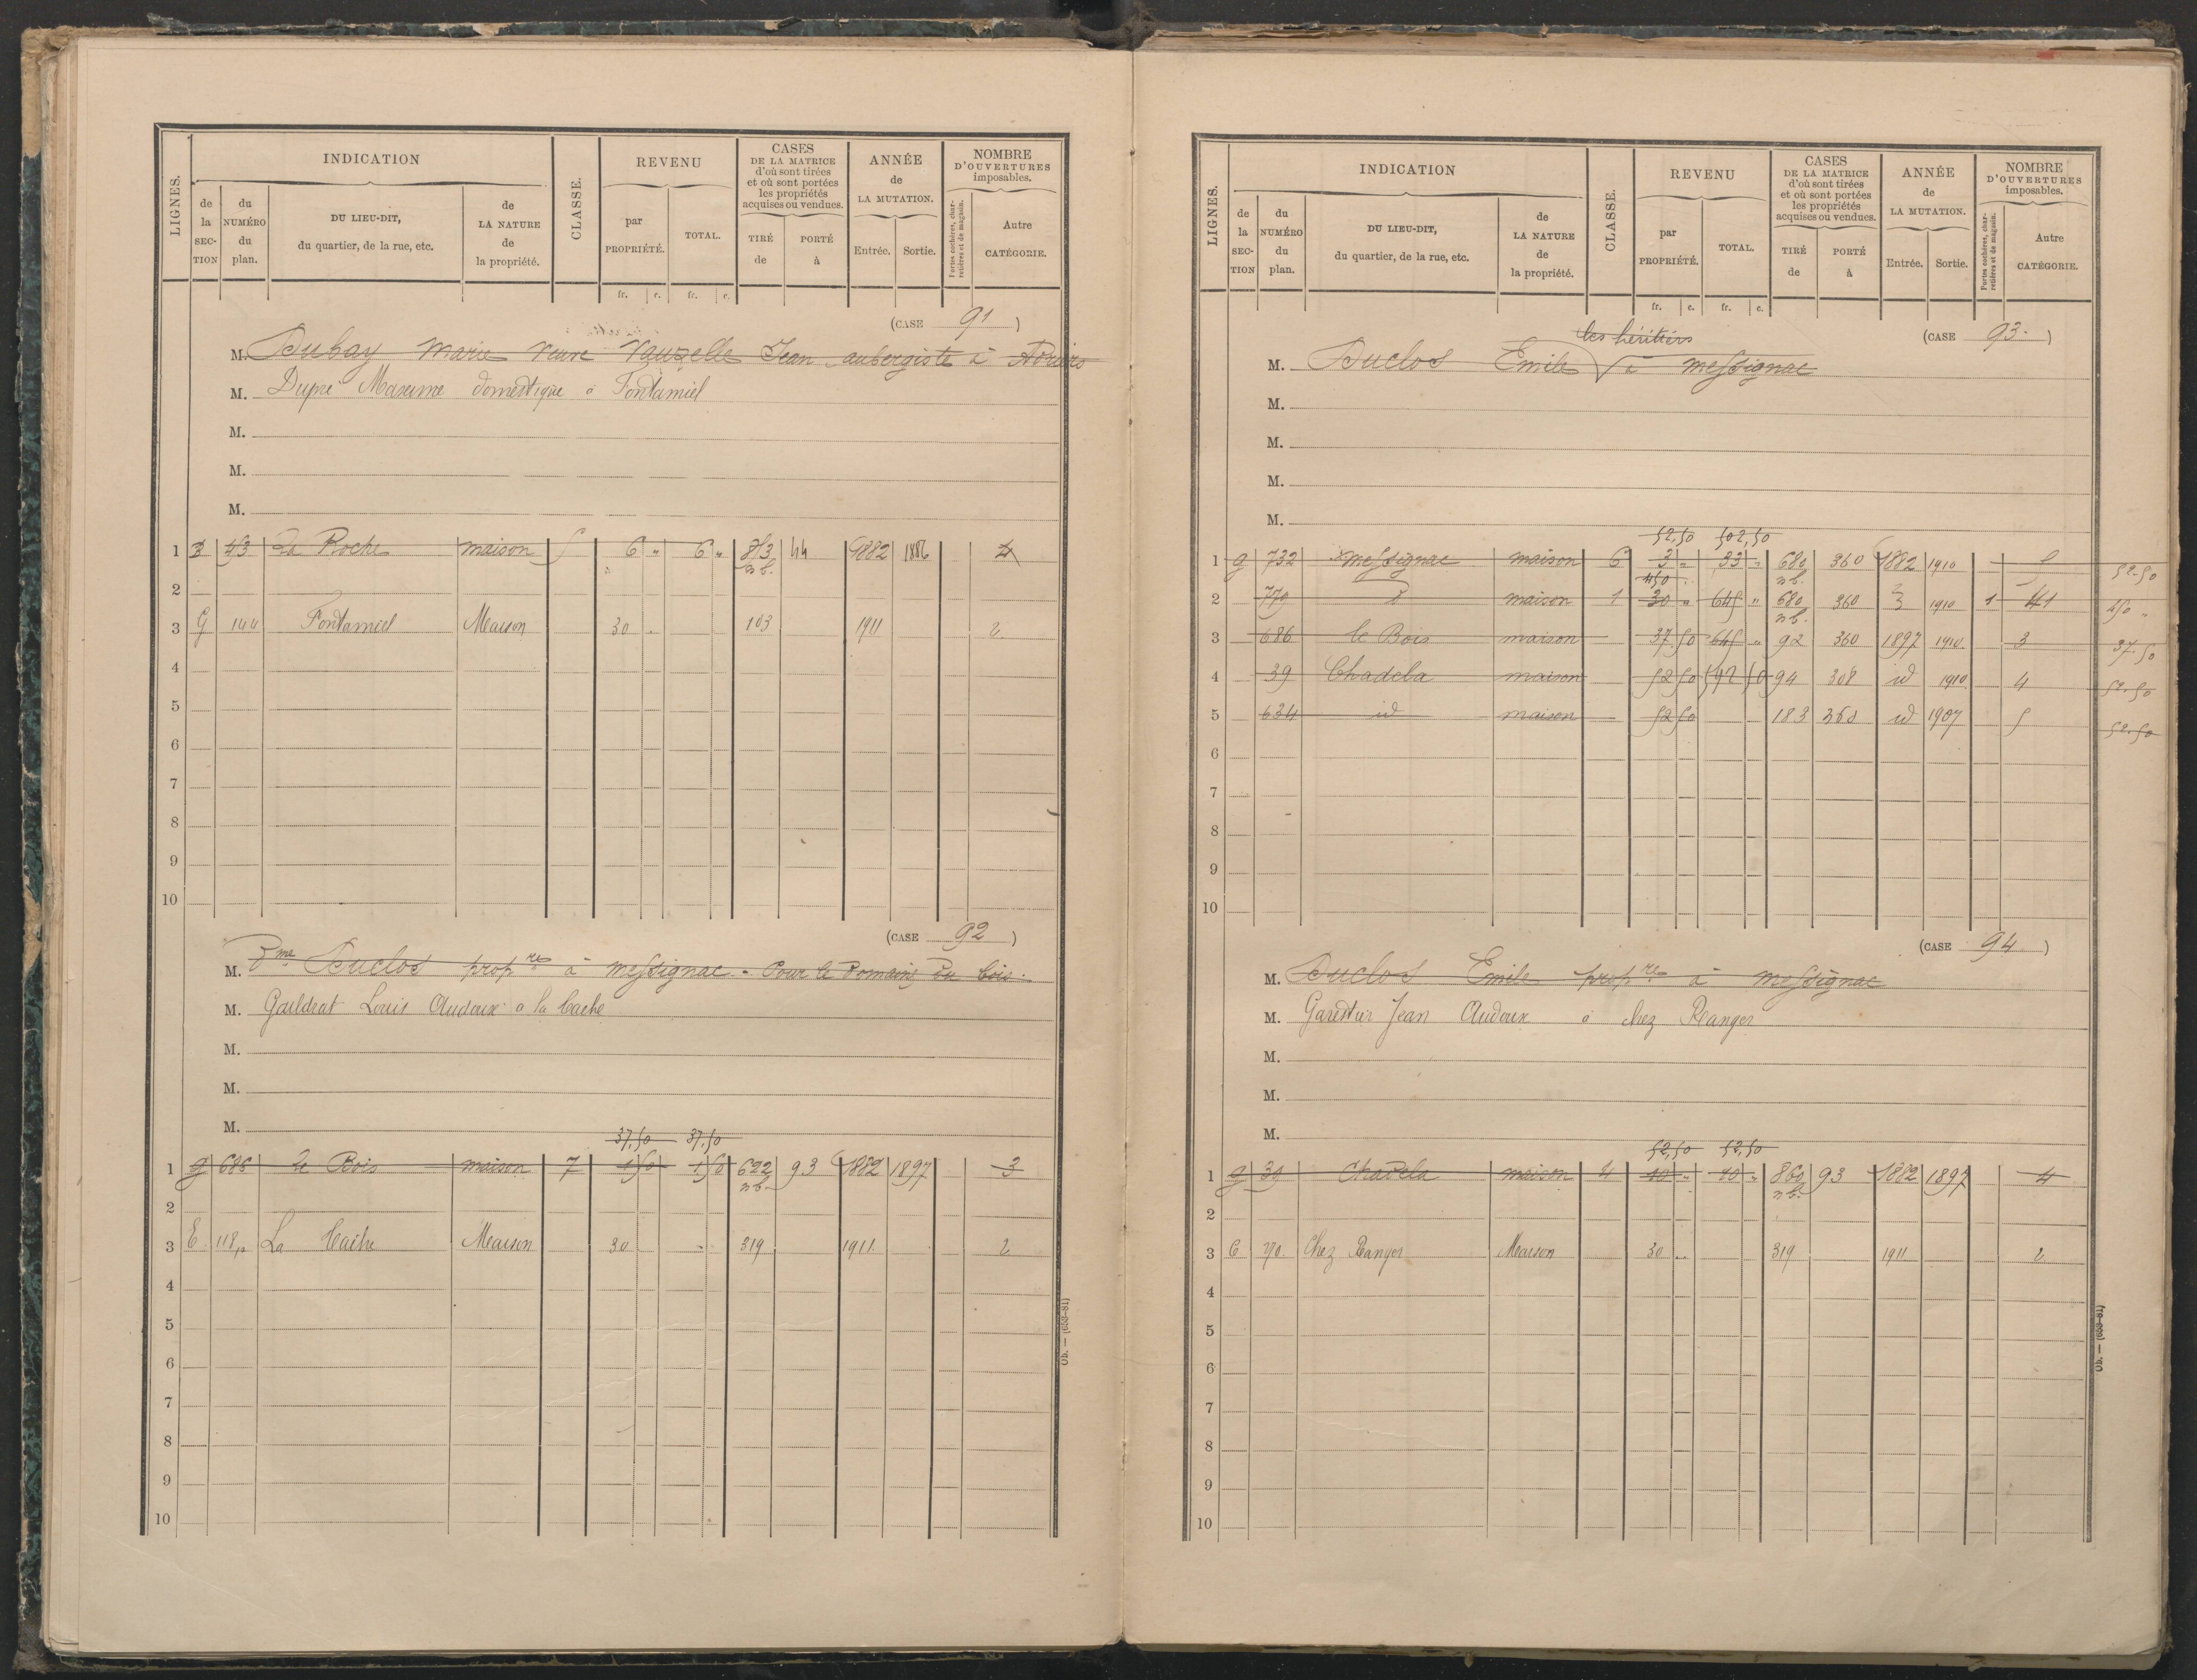 LIGNES. INDICATION CLASSE. REVENU CASES DE LA MATRICE d'où sont tirées et où sont portées les propriétés acquises ou vendues. ANNÉE de LA MUTATION. NOMBRE D'OUVERTURES imposables.
de la SECTION du NUMÉRO du plan. DU LIEU-DIT, du quartier, de la rue, etc. de LA NATURE de la propriété. par PROPRIÉTÉ. TOTAL. TIRÉ de PORTÉ à Entrée. Sortie. Portes cochères, charretières et de magasin. Autre CATÉGORIE.
fr. c. fr. c.
(CASE 91)
M. Dubay Marie veuve Vauzelle Jean aubergiste à Adriers
M. Dupré Maxime domestique à Fontamiel
M.
M.
M.
1 43 La Roche maison 5 6 " 6 " 813 44 1882 1886 4
n.b.
2
3 G 144 Fontamiel Maison 30 " 103 1911 2
4
5
6
7
8
9
10
(CASE 92)
M. Dme Duclos propre à Messignac - Pour le Domaine du bois.
M. Gaildrat Louis Audoux à la Cache
M.
M.
M.
37,50 37,50
1 G 686 Le Bois maison 7 1 50 1 50 622 93 1882 1897 3
n.b.
2
3 E 118p La Cache Maison 30 " 319 1911 2
4
5
6
7
8
9
10
Ob. — (653-81)
LIGNES. INDICATION CLASSE. REVENU CASES DE LA MATRICE d'où sont tirées et où sont portées les propriétés acquises ou vendues. ANNÉE de LA MUTATION. NOMBRE D'OUVERTURES imposables.
de la SECTION du NUMÉRO du plan. DU LIEU-DIT, du quartier, de la rue, etc. de LA NATURE de la propriété. par PROPRIÉTÉ. TOTAL. TIRÉ de PORTÉ à Entrée. Sortie. Portes cochères, charretières et de magasin. Autre CATÉGORIE.
fr. c. fr. c.
(CASE 93.)
les héritiers
M. Duclos Emile à Messignac
M.
M.
M.
M.
52,50 502,50
1 G 732 Messignac maison 6 3 " 33 " 680 360 1882 1910 52.50
450 n.b.
2 779 maison 1 30 " 645 " 680 360 1910 1 41 450 "
n.b.
3 686 le Bois maison 37 50 645 " 92 360 1897 1910 3 37.50
4 39 Chadela maison 52 50 592 50 94 308 id 1910 4 52.50
5 634 id maison 52 50 183 360 id 1907 5 52.50
6
7
8
9
10
(CASE 94)
M. Duclos Emile propre à Messignac
M. Garestier Jean Audoux à chez Ranger
M.
M.
M.
52,50 52,50
1 G 39 Chadela maison 4 10 " 10 " 860 93 1882 1897 4
n.b.
2
3 C 70 Chez Ranger Maison 30 " 319 1911 2
4
5
6
7
8
9
10
Ob. — (653-81)